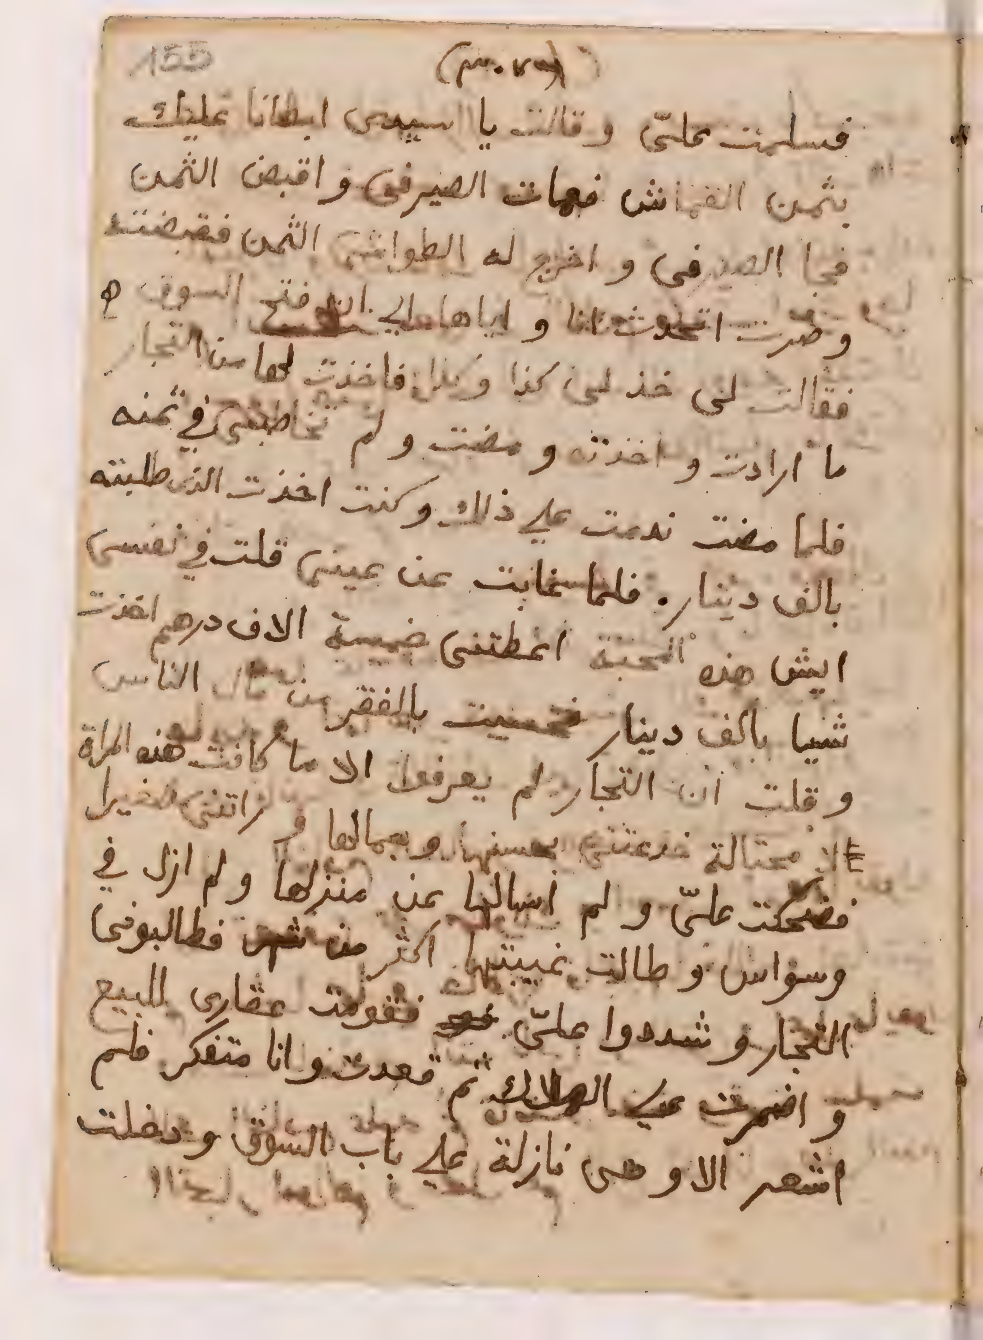 155
فسلمت عليّ وقالت يا سيدى ابطانا عليك
بثمن القماش فهات الصيرفى واقبض الثمن
فجا الصيرفى و اخرج له الطواشى الثمن فقبضته
وصرت اتحدث انا و اياها الى ان فتح السوق
فقالت لى خذ لى كذا و كذا فاخذت لها من التجار
ما ارادت و اخذته و مضت و لم تخاطبنى في ثمنه
فلما مضت ندمت على ذلك وكنت اخذت الذى طلبته
بالف دينار. فلما غابت عن عينى قلت في نفسى
ايش هذه المحبة اعطتنى خمسة الاف درهم اخذت
شيا بالف دينار فحسيت بالفقر من مال الناس
و قلت ان التجار لم يعرفوا الا ما كانت هذه المراة
الا محتالة خدعتنى بحسنها وبجمالها و راتنى صغيرا
فضحكت عليّ و لم اسالها عن منزلها و لم ازل في
وسواس و طالت غيبتها اكثر من شهر فطالبونى
التجار و شددوا عليّ فقومت عقارى للبيع
و اضمرت على الهلاك ثم قعدت وانا متفكر فلم
اشعر الا و هى نازلة على باب السوق و دخلت